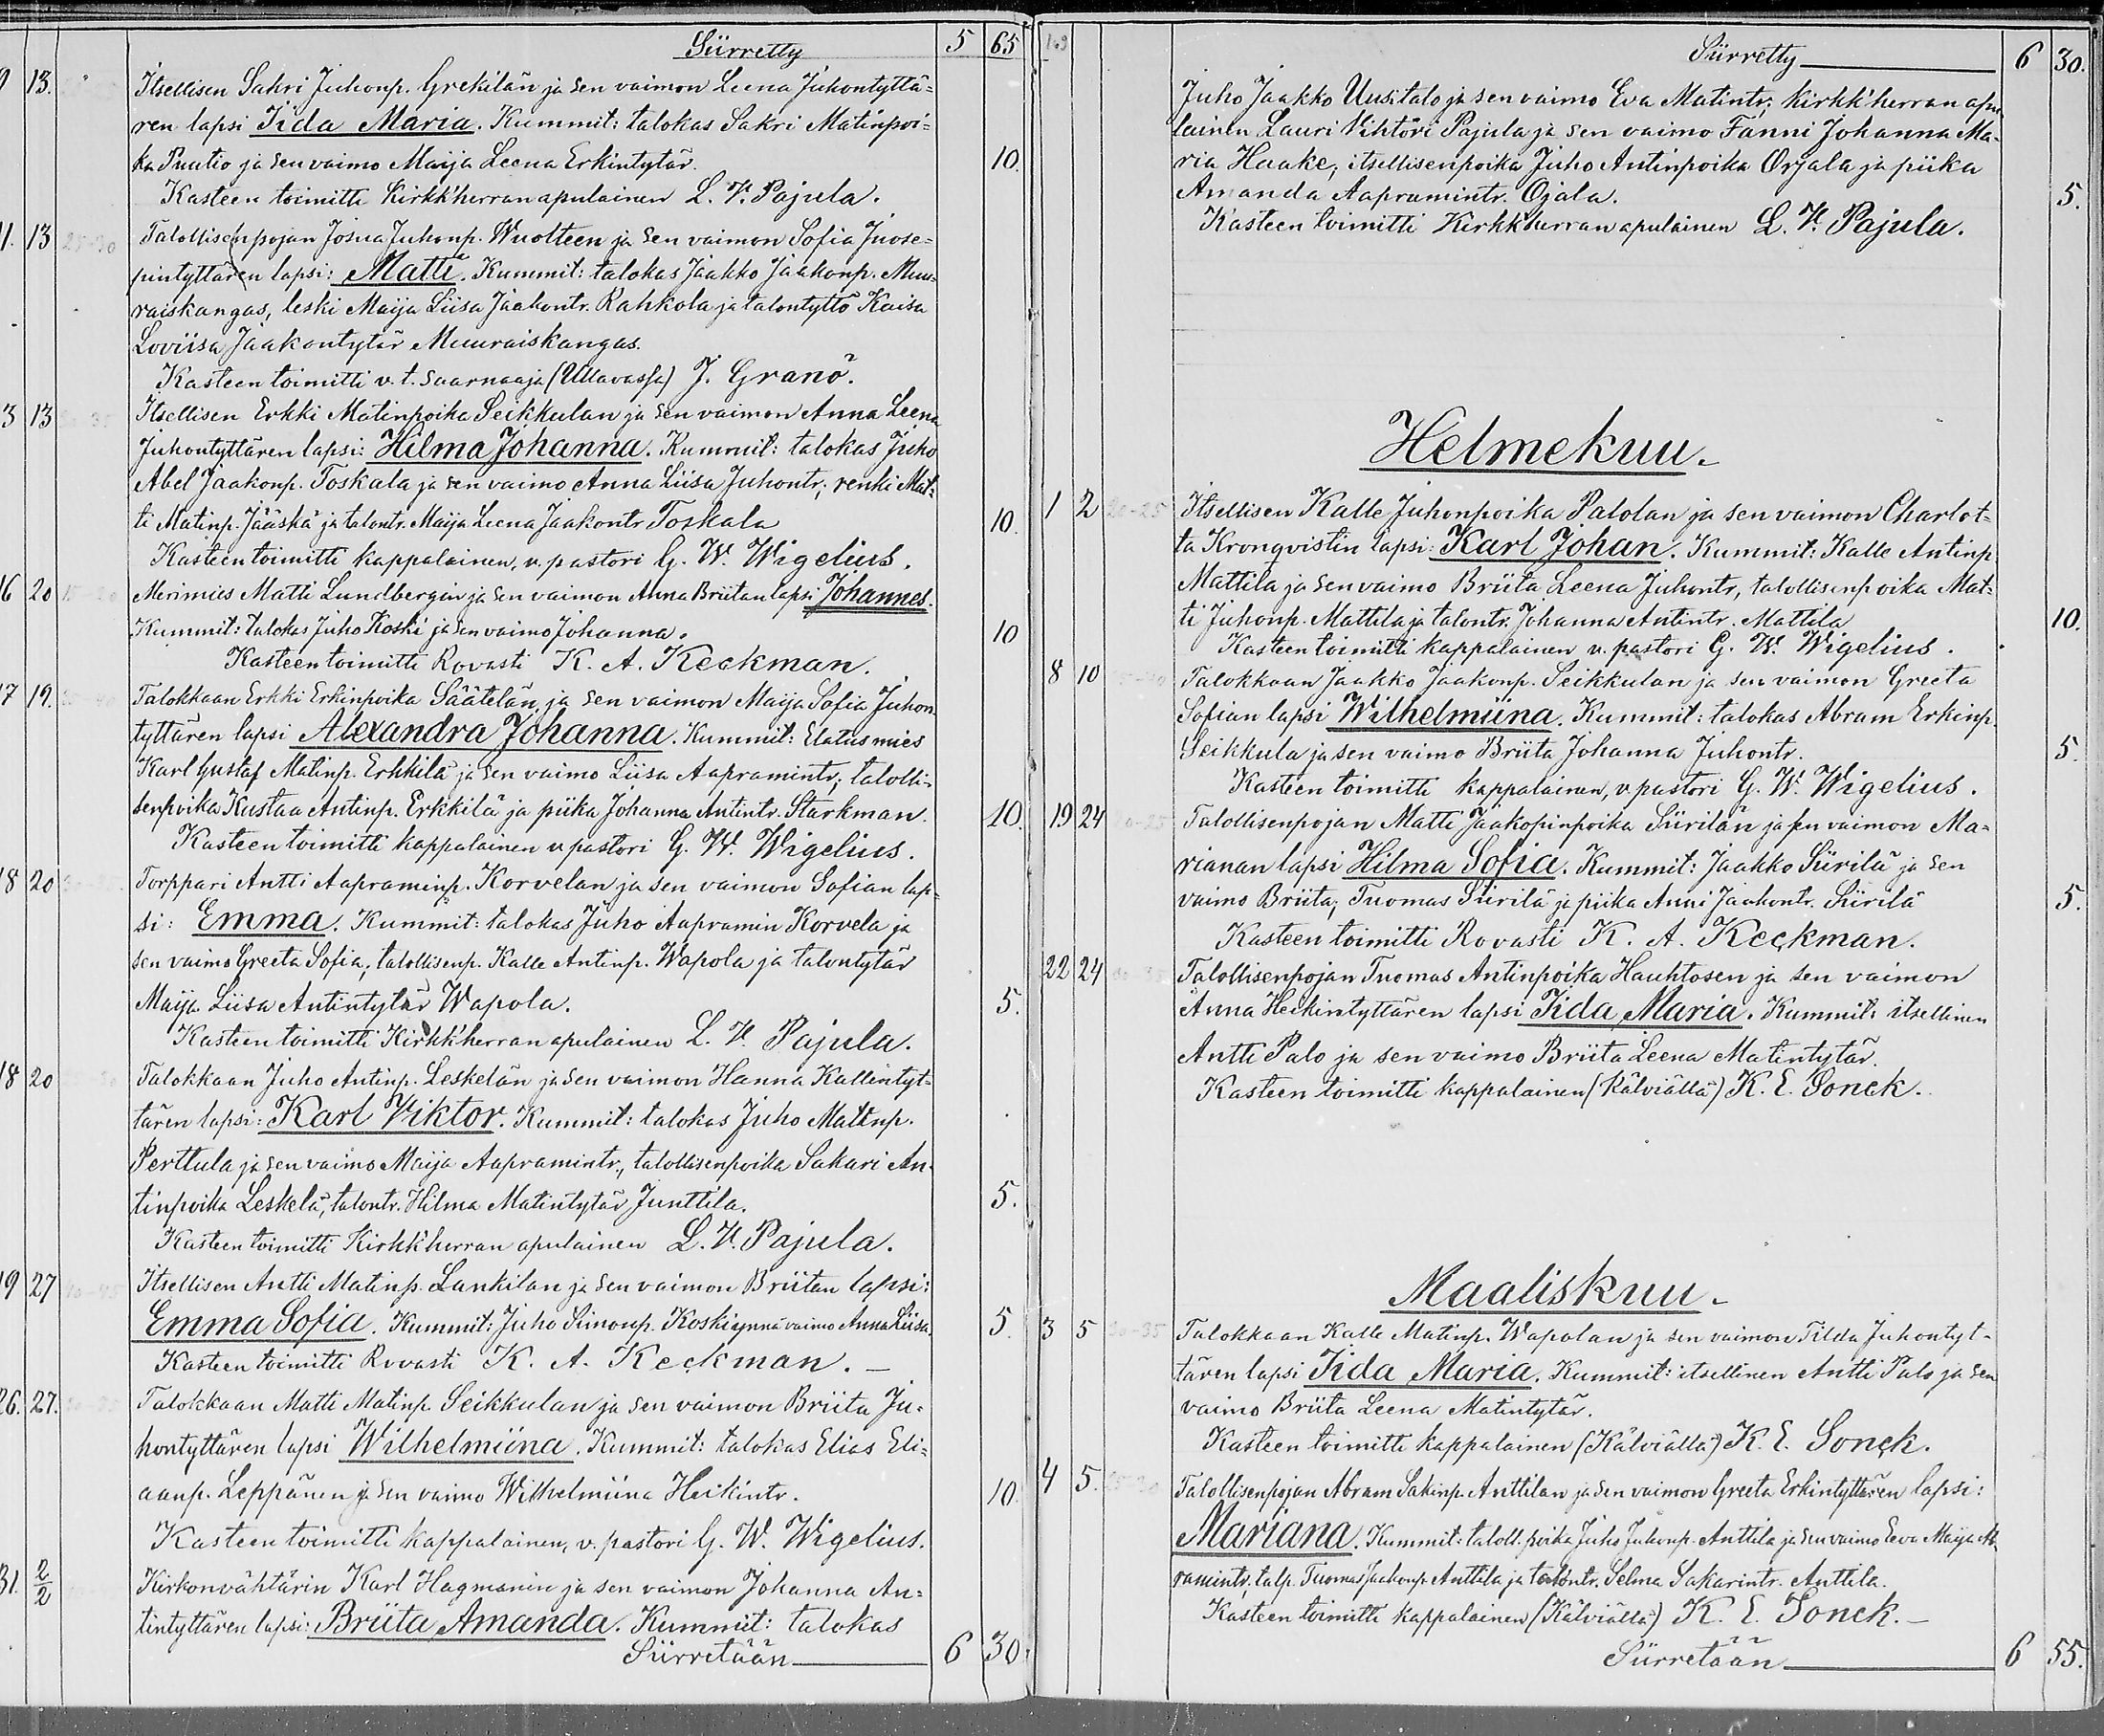 Siirretty 5 65
13. Itsellisen Sakri Juhonp. Grekilän ja sen vaimon Leena Juhontyttä=
ren lapsi Iida Maria. Kummit: talokas Sakri Matinpoi=
ka Puutio ja sen vaimo Maija Leena Erkintytär. 10.
Kasteen toimitti Kirkk'herran apulainen L. V. Pajula.
11. 13 25-30 Talollisen pojan Josua Juhonp. Wuolteen ja sen vaimon Sofia Juose=
pintyttären lapsi: Matti. Kummit: talokas Jaakko Jaakonp. Muu=
raiskangas, leski Maija Liisa Jaakontr. Rahkola ja talontyttö Kaisa
Loviisa Jaakontytär Muuraiskangas.
Kasteen toimitti v. t. saarnaaja (Ullavassa) J. Granö.
3 13 Itsellisen Erkki Matinpoika Seikkulan ja sen vaimon Anna Leena
Juhontyttären lapsi: Hilma Johanna. Kummit: talokas Juho
Abel Jaakonp. Toskala ja sen vaimo Anna Liisa Juhontr; renki Mat=
ti Matinp. Jääskä ja talontr. Maija Leena Jaakontr Toskala 10.
Kasteen toimitti kappalainen, v. pastori G. W. Wigelius.
16 20 Merimies Matti Lundbergin ja sen vaimon Anna Briitan lapsi Johannes.
Kummit: talokas Juho Koski ja sen vaimo Johanna. 10
Kasteen toimitti Rovasti K. A. Keckman.
17 19. Talokkaan Erkki Erkinpoika Säätelän ja sen vaimon Maija Sofia Juhon
tyttären lapsi Alexandra Johanna. Kummit: Elatusmies
Karl Gustaf Matinp. Erkkilä ja sen vaimo Liisa Aapramintr; talolli=
senpoika Kustaa Antinp. Erkkilä ja piika Johanna Antintr. Starkman. 10.
Kasteen toimitti kappalainen v. pastori G. W. Wigelius.
18 20 Torppari Antti Aapraminp. Korvelan ja sen vaimon Sofian lap=
si: Emma. Kummit: talokas Juho Aapramin Korvela ja
sen vaimo Greeta Sofia; talollisenp. Kalle Antinp. Wapola ja talontytär
Maija Liisa Antintytär Wapola. 5.
Kasteen toimitti Kirkk'herran apulainen L. V. Pajula.
18 20 Talokkaan Juho Antinp. Leskelän ja sen vaimon Hanna Kallintyt=
tären lapsi: Karl Viktor. Kummit: talokas Juho Matinp.
Perttula ja sen vaimo Maija Aapramintr., talollisenpoika Sakari An=
tinpoika Leskelä, talontr. Hilma Matintytär Junttila. 5.
Kasteen toimitti Kirkk'herran apulainen L. V. Pajula.
19 27 40-45 Itsellisen Antti Matinp. Lankilan ja sen vaimon Briitan lapsi:
Emma Sofia. Kummit: Juho Simonp. Koski ynnä vaimo Anna Liisa. 5.
Kasteen toimitti Rovasti K. A. Keckman. –
26. 27. Talokkaan Matti Matinp. Seikkulan ja sen vaimon Briita Ju=
hontyttären lapsi Wilhelmiina. Kummit: talokas Elias Eli=
aanp. Leppänen ja sen vaimo Wilhelmiina Heikintr. 10.
Kasteen toimitti kappalainen, v. pastori G. W. Wigelius.
31. 2/2 Kirkonvahtärin Karl Hagmanin ja sen vaimon Johanna An=
tintyttären lapsi: Briita Amanda. Kummit: talokas
Siirretään 6 30.
Siirretty 6 30.
Juho Jaakko Uusitalo ja sen vaimo Eva Matintr; kirkk'herran apu
lainen Lauri Vihtori Pajula ja sen vaimo Fanni Johanna Ma=
ria Haake, itsellisenpoika Juho Antinpoika Orjala ja piika
Amanda Aapramintr. Ojala. 5.
Kasteen toimitti Kirkkherran apulainen L. V. Pajula.
Helmekuu.
1 2 20-25 Itsellisen Kalle Juhonpoika Palolan ja sen vaimon Charlot=
ta Kronqvistin lapsi: Karl Johan. Kummit: Kalle Antinp.
Mattila ja sen vaimo Briita Leena Juhontr, talollisenpoika Mat=
ti Juhonp. Mattila ja talontr. Johanna Antintr. Mattila 10.
Kasteen toimitti kappalainen v. pastori G. W. Wigelius.
8 10 Talokkaan Jaakko Jaakonp. Seikkulan ja sen vaimon Greeta
Sofian lapsi Wilhelmiina. Kummit: talokas Abram Erkinp.
Seikkula ja sen vaimo Briita Johanna Juhontr. 5.
Kasteen toimitti kappalainen, v. pastori G. W. Wigelius.
19 24 Talollisenpojan Matti Jaakopinpoika Siirilän ja sen vaimon Ma=
rianan lapsi Hilma Sofia. Kummit: Jaakko Siirilä ja sen
vaimo Briita; Tuomas Siirilä ja piika Anni Jaakontr. Siirilä 5.
Kasteen toimitti Rovasti K. A. Keckman.
22 24 Talollisenpojan Tuomas Antinpoika Hauhtosen ja sen vaimon
Anna Heikintyttären lapsi Iida Maria. Kummit: itsellinen
Antti Palo ja sen vaimo Briita Leena Matintytär.
Kasteen toimitti kappalainen (Kälviällä) K. E. Sonck.
Maaliskuu.
3 5 Talokkaan Kalle Matinp. Wapolan ja sen vaimon Tilda Juhontyt=
tären lapsi Iida Maria. Kummit: itsellinen Antti Palo ja sen
vaimo Briita Leena Matintytär.
Kasteen toimitti kappalainen (Kälviällä) K. E. Sonck.
4 5. Talollisenpojan Abram Sakinp. Anttilan ja sen vaimon Greeta Erkintyttären lapsi:
Mariana. Kummit: taloll. poika Juho Juhonp. Anttila ja sen vaimo Eeva Maija
ramintr, talp. Tuomas Jaakonp Anttila ja talontr. Selma Sakarintr. Anttila.
Kasteen toimitti kappalainen (Kälviällä) K. E. Sonck. –
Siirretään 6 55.